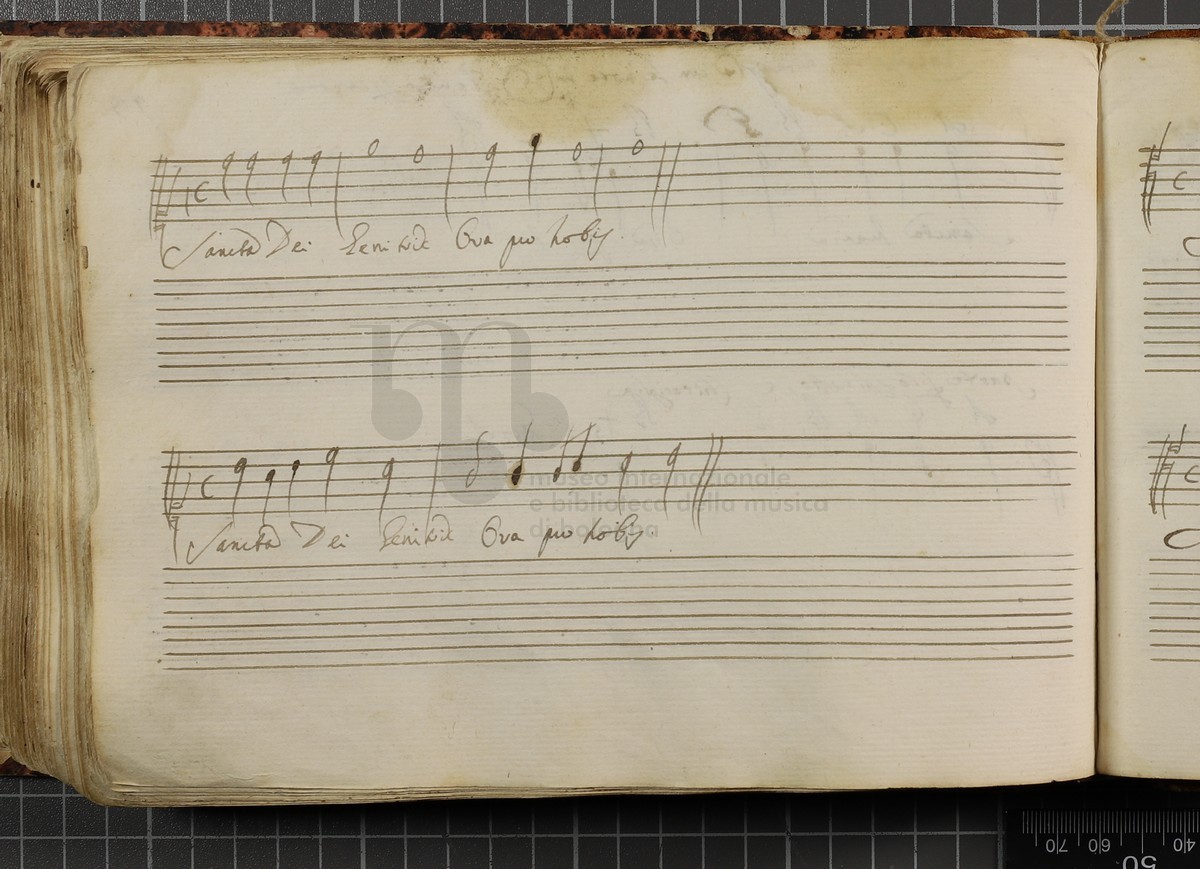 Sancta Dei Genitrix Ora pro nobis.
Sancta Dei Genitrix Ora pro nobis.
museo internazionale
e biblioteca della musica
di bologna
70 60 50 40